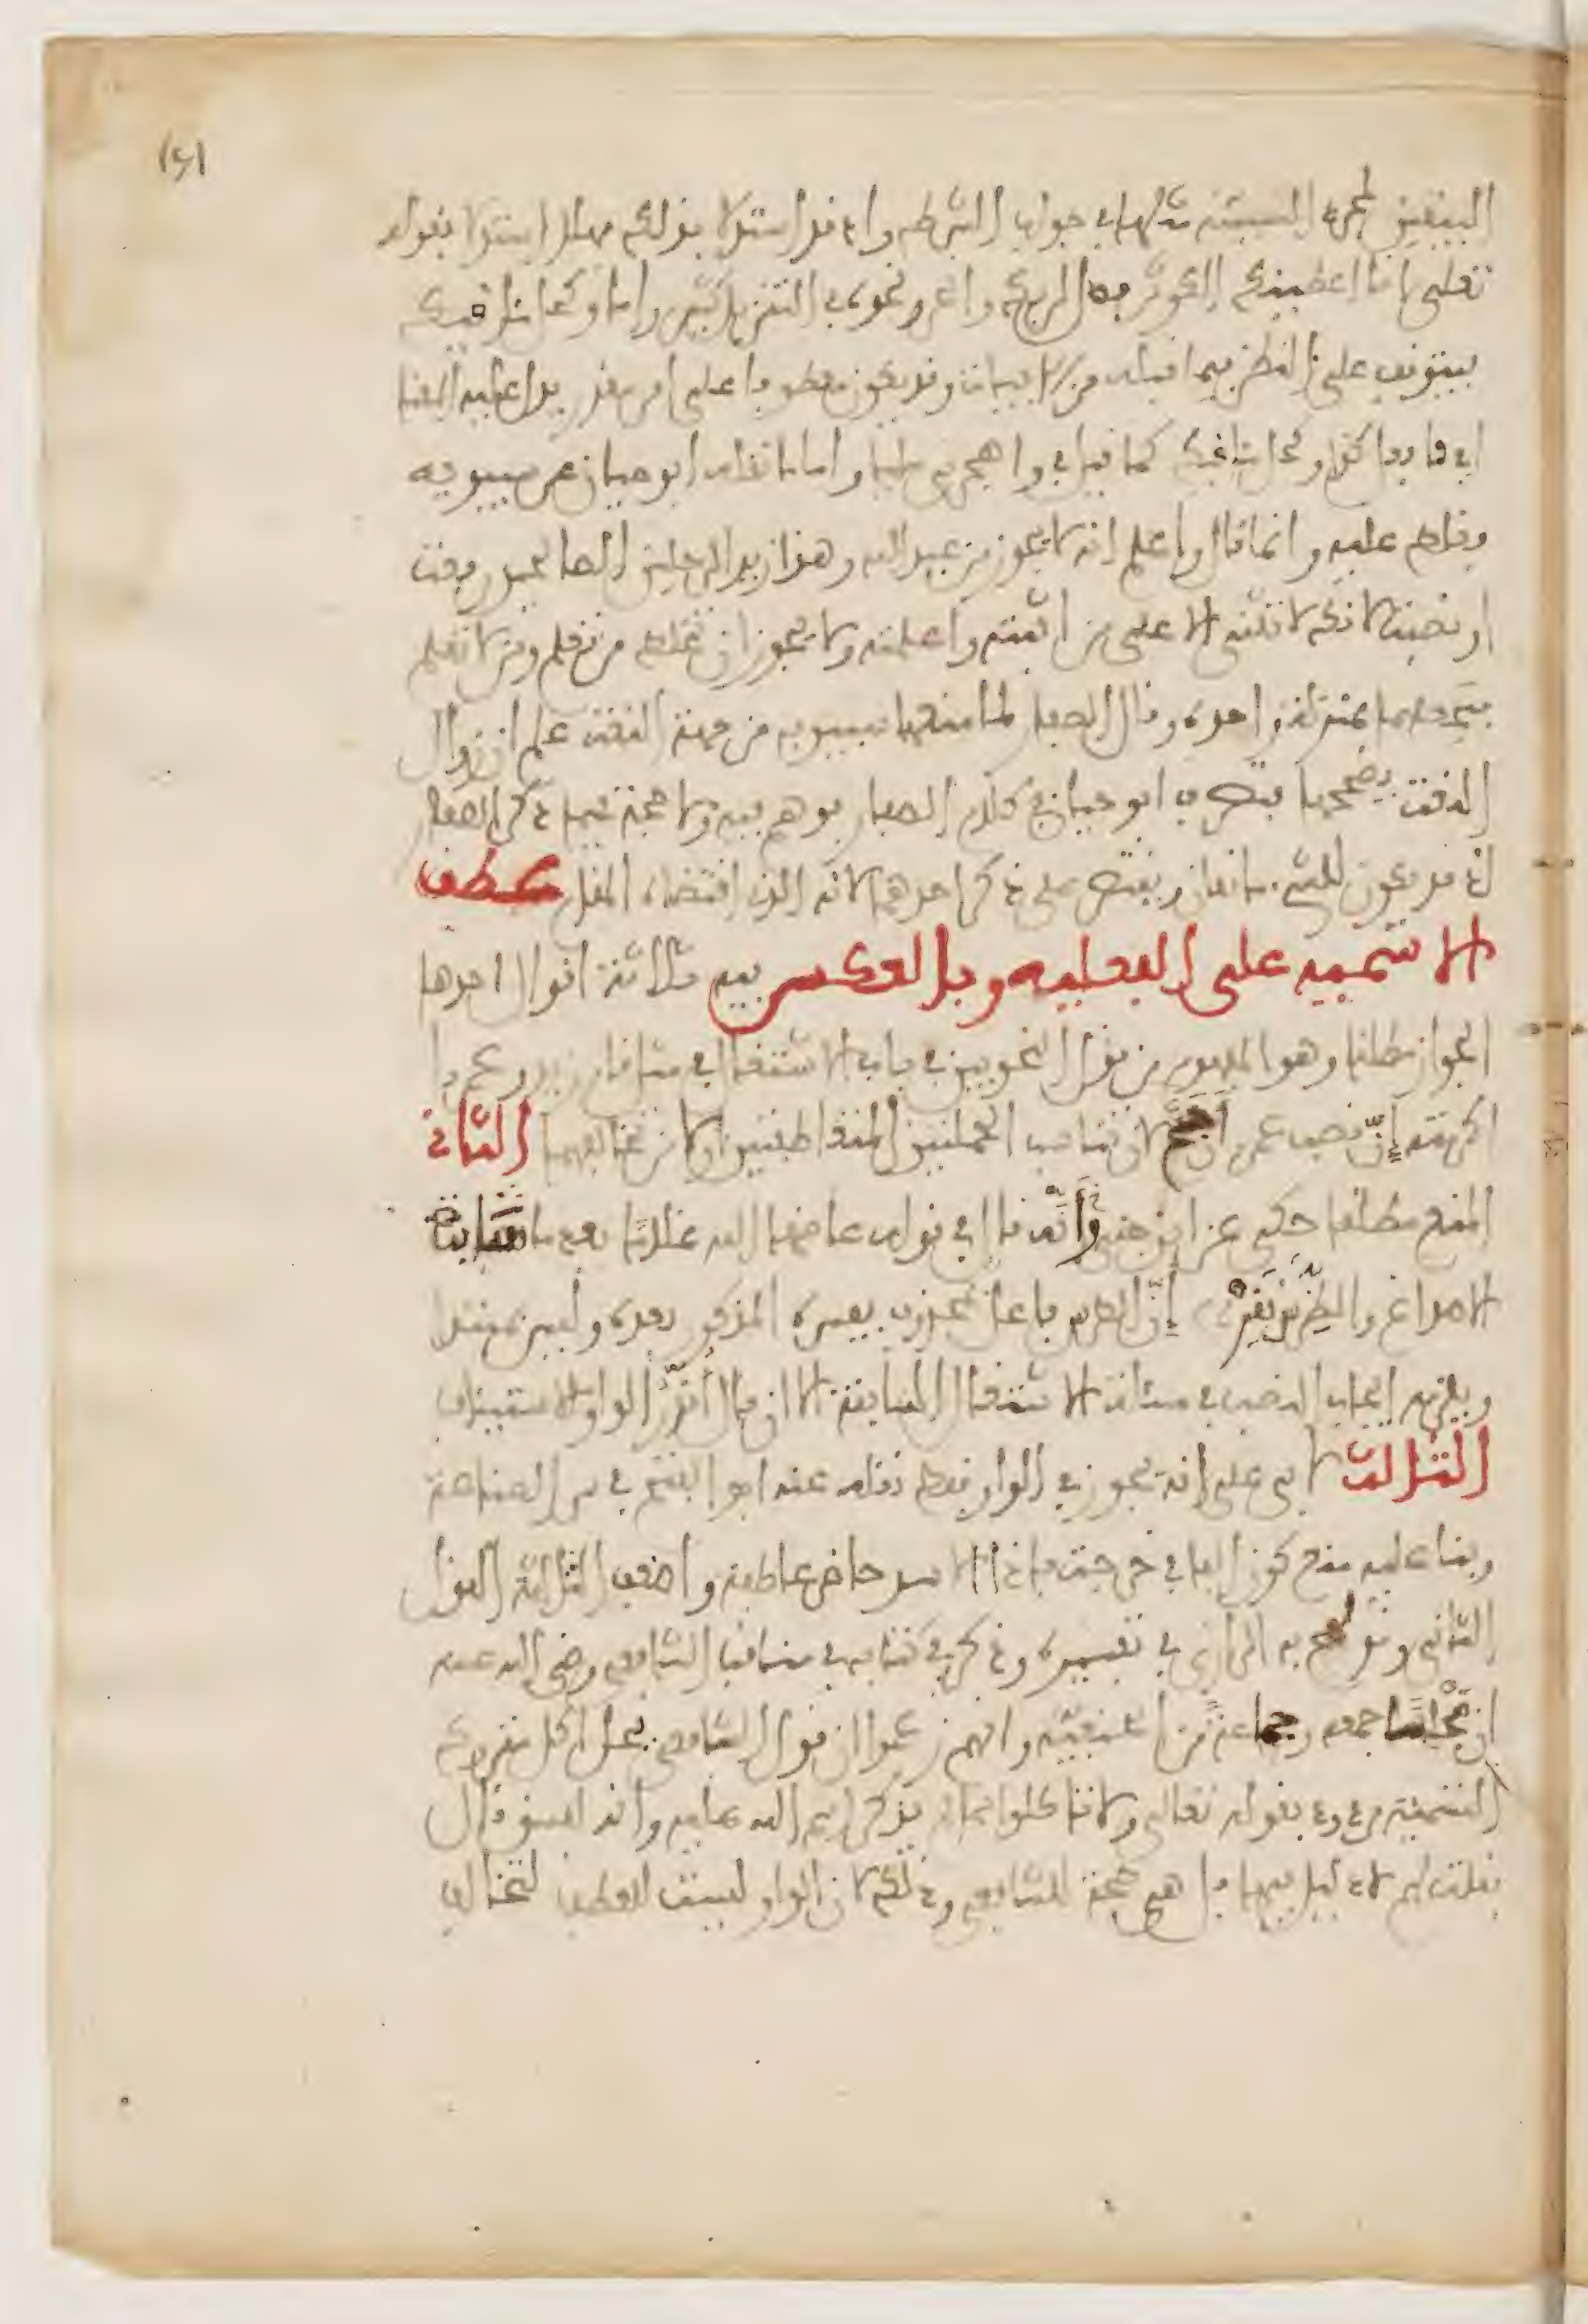 البيتين لمجرد السببية مثلها في جواب الشرط واذ قد استدلا بذلك فهلا استدلا بقوله
تعلى انا اعطينك الكوثر فصل لربك وانحر ونحوه في التنزيل كثير واما وكحل اماقيك
فيتوقف على النظر فيما قبله من الابيات وقد يكون معطوفا على امر مقدر يدل عليه المعنا
اي فافعل كذا وكحل اماقيك كما قيل في واهجرني مليا واما ما نقله ابو حيان عن سيبويه
فغلط عليه وانما قال واعلم انه لا يجوز من عبد الله وهذا زيد الرجلين الصالحين رفعت
او نصبت لانك لا تثني الا على من اثبته واعلمته ولا يجوز ان تخلط من تعلم ومن لا تعلم
فتجعلهما بمنزلة واحدة وقال الصفار لما منعها سيبويه من جهة النعت علم ان زوال
النعت يصححها فتصرف ابو حيان في كلام الصفار فوهم فيه ولا حجة فيما ذكر الصفار
اذ قد يكون للشيء مانعان ويقتصر على ذكر احدهما لانه الذي اقتضاه المقام عطف
الاسميه على الفعليه وبالعكس فيه ثلاثة اقوال احدها
الجواز مطلقا وهو المفهوم من قول النحويين في باب الاشتغال في مثل قام زيد وعمروا
اكرمته إنّ نصب عمرو أرجح لان تناسب الجملتين المتعاطفتين اولا من تخالفهما الثاني
المنع مطلقا حكي عن ابن جني وأنّه قال في قوله عاضها الله غلاما بعد ما شابت
الاصداغ والضرس نقد إنّ الضرس فاعل بمحذوف يفسره المذكور بعده وليس بمبتدا
ويلزمه ايجاب النصب في مسألة الاشتغال السابقة الا ان قال أقدّر الواو للاستيناف
الثالث لابي علي انه يجوز في الواو فقط نقله عنه ابو الفتح في سر الصناعة
وبنا عليه منع كون الفا في خرجت فاذا الاسد حاضر عاطفة واضعف الثلاثة القول
الثاني وقد لهج به الرازي في تفسيره وذكر في كتابه في مناقب الشافعي رضي الله عنه
ان مجلسا جمعه وجماعة من الحنفية وانهم زعموا ان قول الشافعي بحل اكل متروك
التسمية مردود بقوله تعالى ولا تاكلوا مما لم يذكر اسم الله عليه وانه لفسق قال
فقلت لهم لا دليل فيها بل هي حجة للشافعي وذلك لان الواو ليست للعطف لتخالف